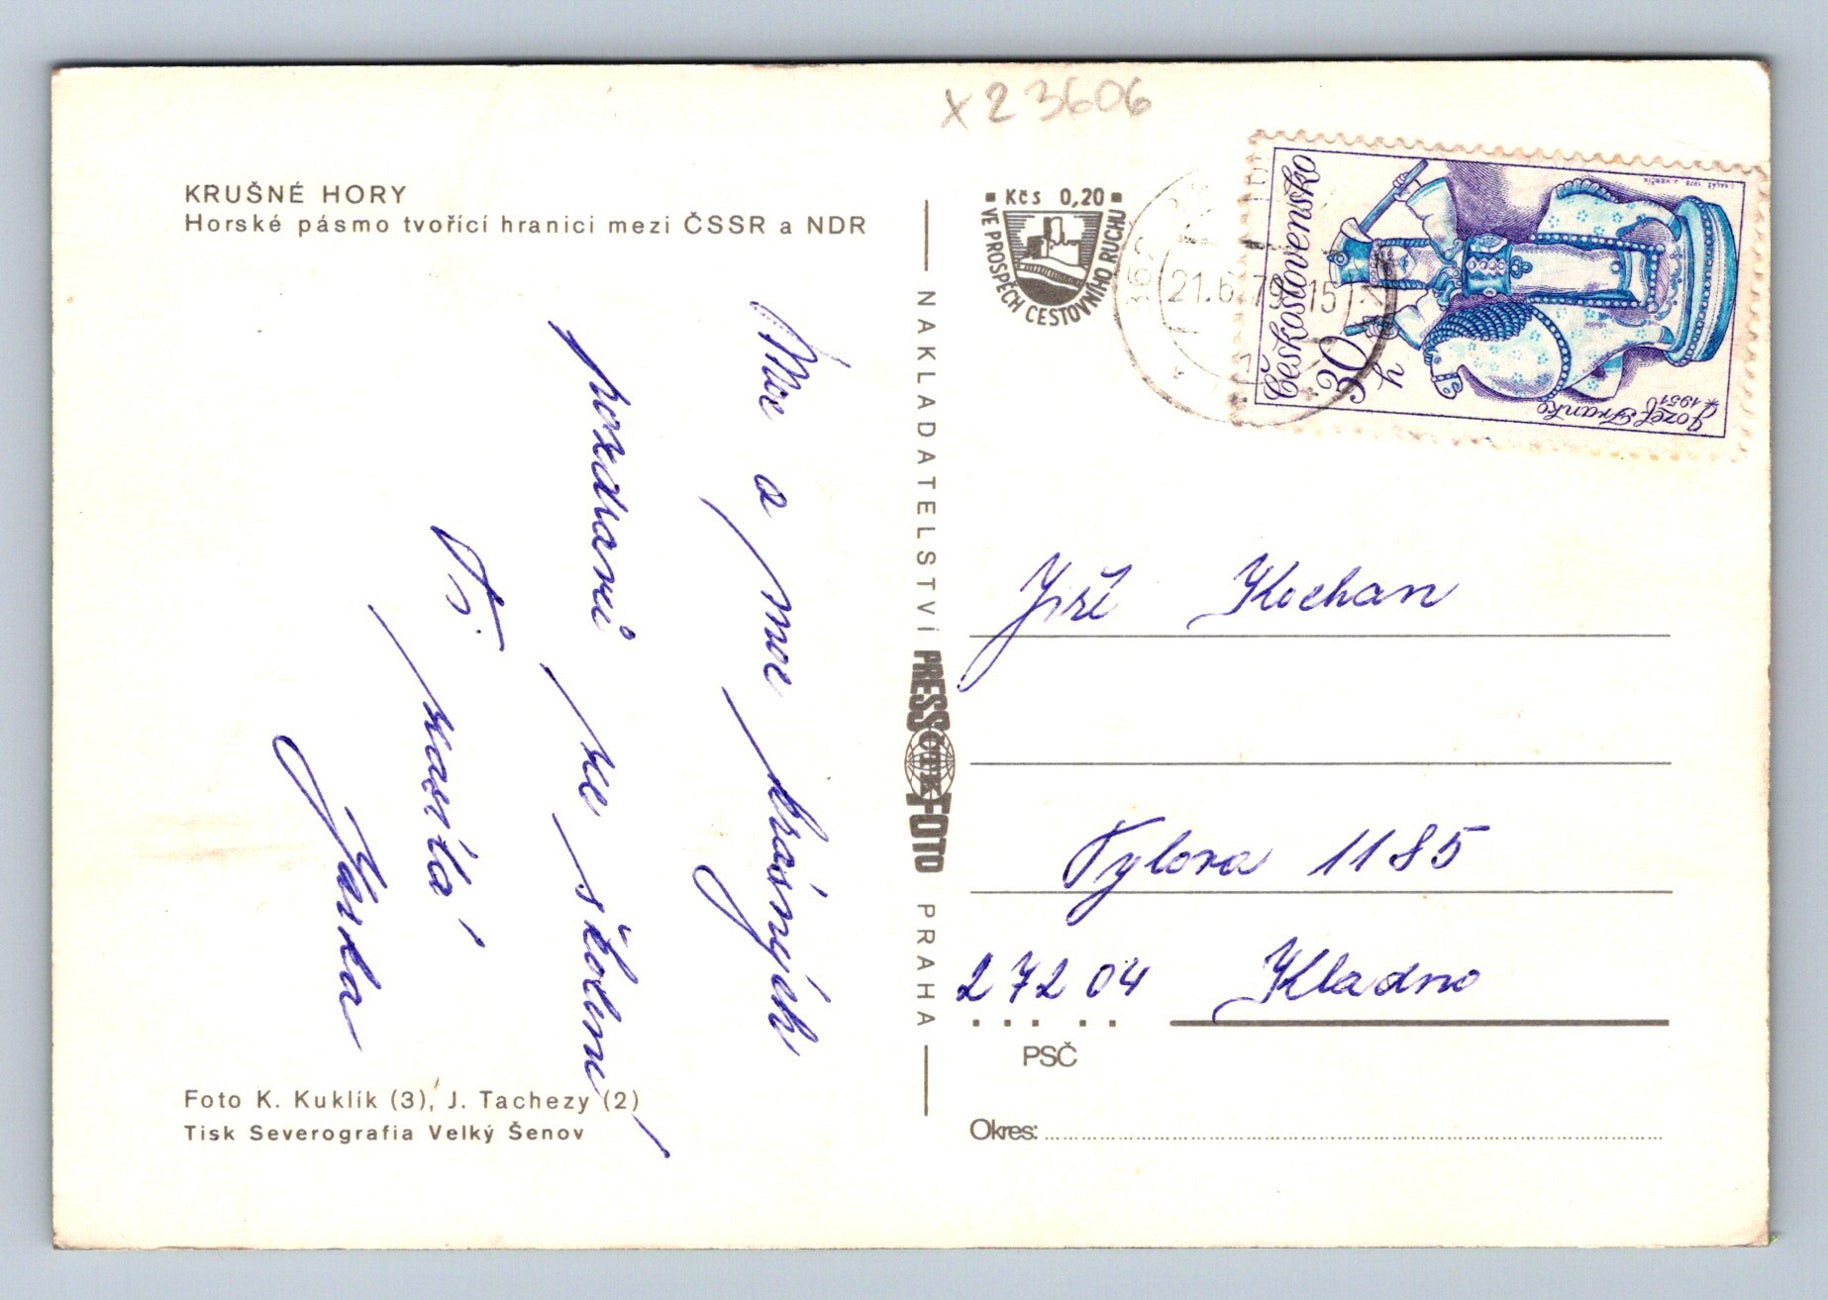 X23606
KRUŠNÉ HORY
Horské pásmo tvořící hranici mezi ČSSR a NDR
Moc a moc krásných
pozdravů ze školení
Ti zasílá
Jarka
Foto K. Kuklík (3), J. Tachezy (2)
Tisk Severografia Velký Šenov
NAKLADATELSTVÍ PRESSFOTO PRAHA
ČTK
Kčs 0,20
VE PROSPĚCH CESTOVNÍHO RUCHU
21.6.7 15
Československo
30 h
Jozef Franko
*1951
Jiří Kochan
Tylova 1185
272 04 Kladno
PSČ
Okres: